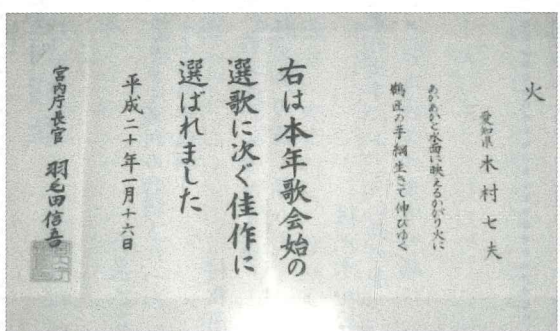 火
愛知県 木村七夫
あかあかと水面に映えるかがり火に
鵜匠の手綱生きて伸びゆく
右は本年歌会始の
選歌に次ぐ佳作に
選ばれました
平成二十年一月十六日
宮内庁長官 羽毛田信吾